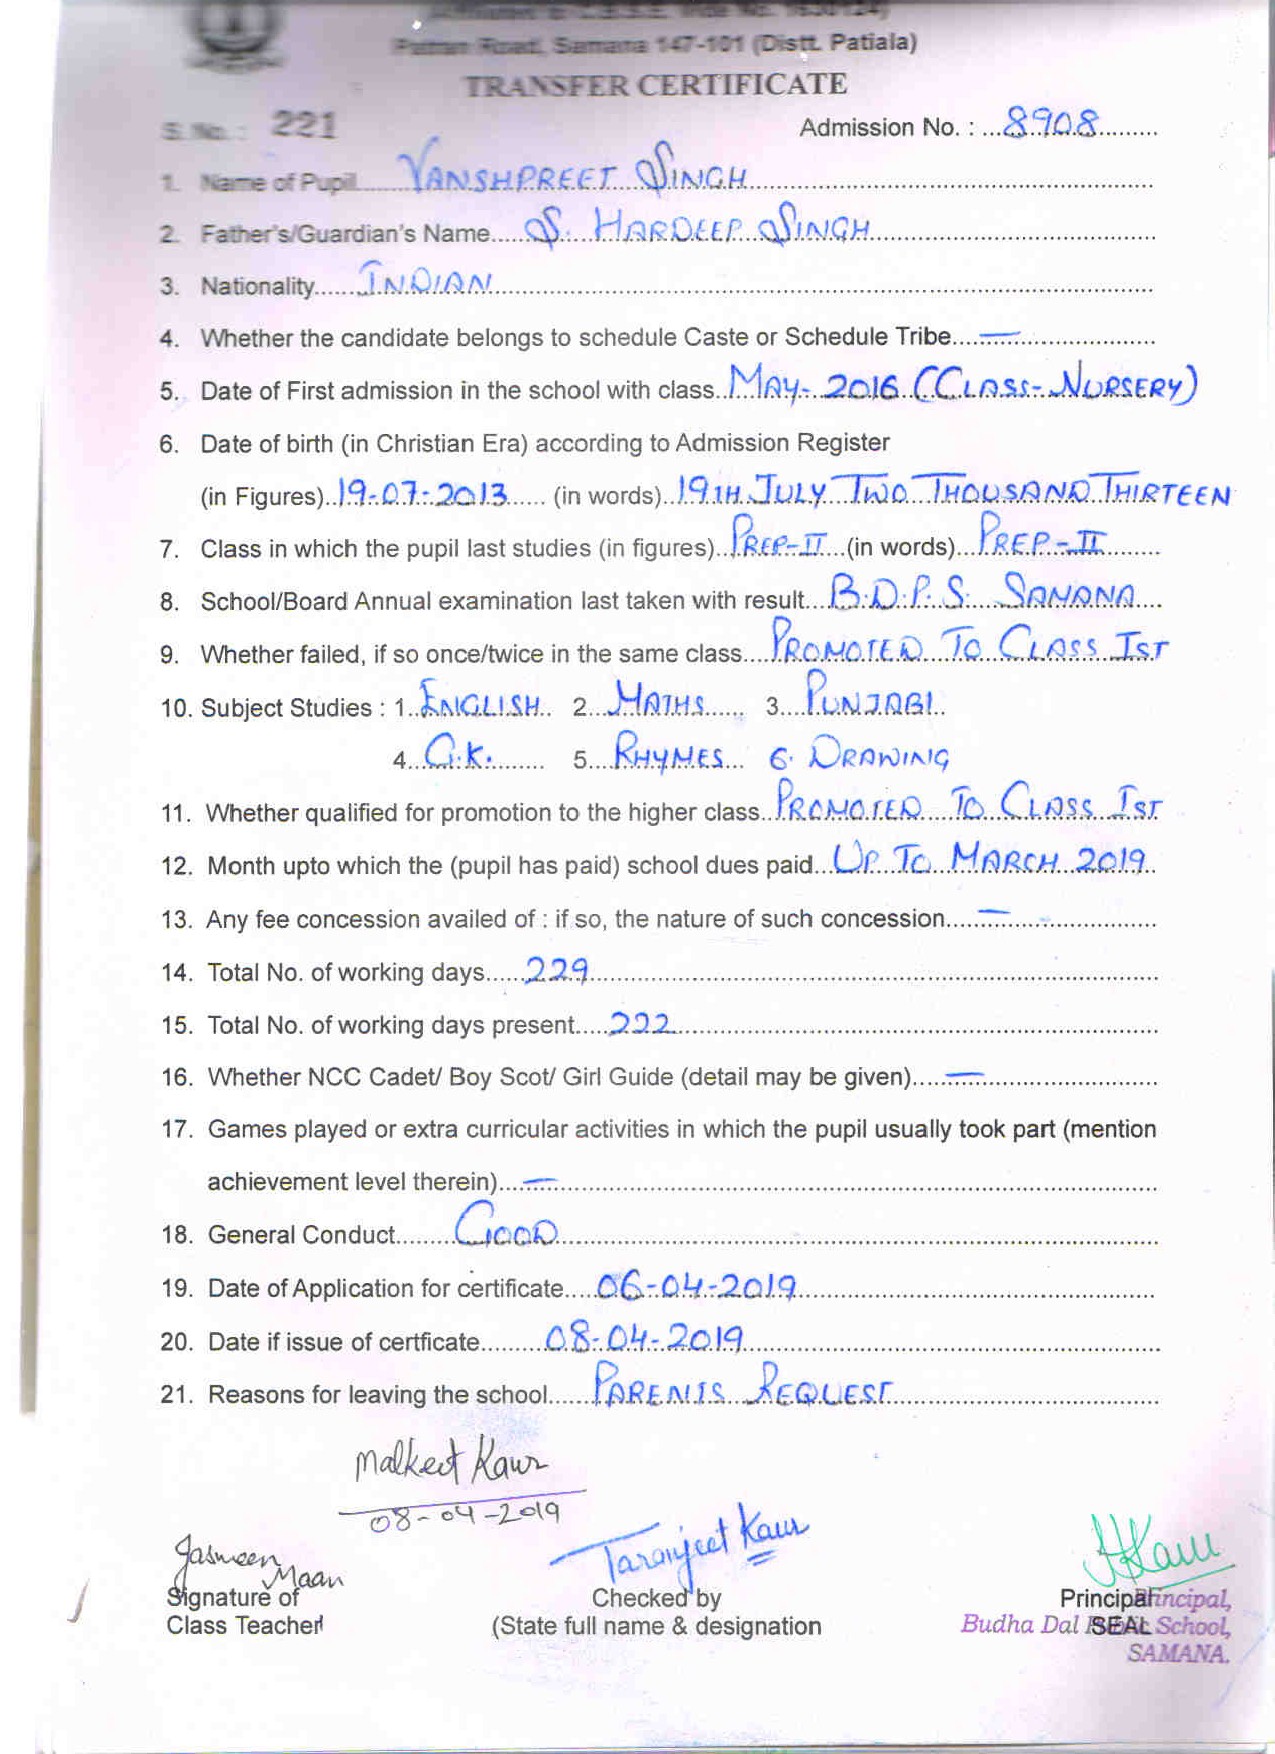 Patran Road, Samana 147-101 (Distt. Patiala)
TRANSFER CERTIFICATE
S. No. : 221 Admission No. : ...8908.........
1. Name of Pupil.......VANSHPREET SINGH.......
2. Father's/Guardian's Name......S. HARDEEP SINGH.......
3. Nationality.......INDIAN.......
4. Whether the candidate belongs to schedule Caste or Schedule Tribe....—.......
5. Date of First admission in the school with class..MAY-2016 (CLASS-NURSERY)
6. Date of birth (in Christian Era) according to Admission Register
(in Figures)..19-07-2013..... (in words)..19TH JULY TWO THOUSAND THIRTEEN
7. Class in which the pupil last studies (in figures)..PREP-II...(in words)...PREP-II.......
8. School/Board Annual examination last taken with result...B.D.P.S. SAMANA....
9. Whether failed, if so once/twice in the same class....PROMOTED TO CLASS IST
10. Subject Studies : 1..ENGLISH.. 2...MATHS...... 3....PUNJABI..
4...G.K......... 5....RHYMES... 6. DRAWING
11. Whether qualified for promotion to the higher class..PROMOTED TO CLASS IST
12. Month upto which the (pupil has paid) school dues paid...UP TO MARCH 2019..
13. Any fee concession availed of : if so, the nature of such concession....—.......
14. Total No. of working days......229.......
15. Total No. of working days present.....222.......
16. Whether NCC Cadet/ Boy Scot/ Girl Guide (detail may be given)....—.......
17. Games played or extra curricular activities in which the pupil usually took part (mention
achievement level therein)...—.......
18. General Conduct........GOOD.......
19. Date of Application for certificate....06-04-2019.......
20. Date if issue of certficate.........08-04-2019.......
21. Reasons for leaving the school......PARENTS REQUEST.......
Malkeet Kaur
08-04-2019
Jasmeen Maan
Taranjeet Kaur
Signature of Checked by Principal Principal,
Class Teacher (State full name & designation SEAL Budha Dal School,
SAMANA.